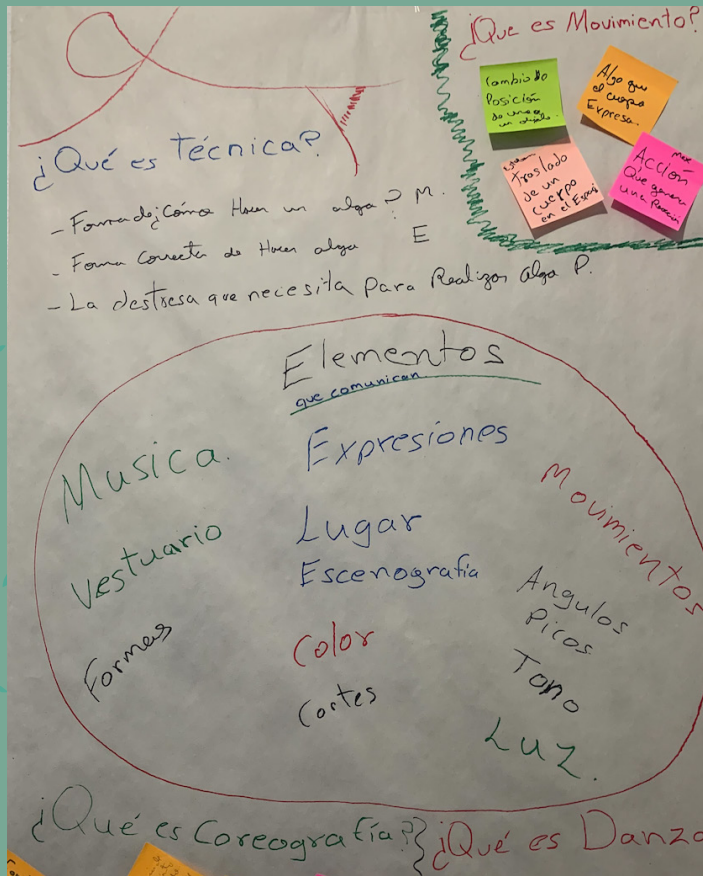 ¿Que es Movimiento?
Cambio de
Posición
de uno o
un objeto.
Algo que
el cuerpo
Expresa.
Traslado
de un
cuerpo
en el Espacio
Max
Acción
Que genera
una Reacción
¿Qué es Técnica?
- Forma de ¿Cómo Hacer un algo? M.
- Forma Correcta de Hacer algo E
- La destresa que necesita Para Realizar algo P.
Elementos
que comunican
Expresiones
Musica.
Movimientos
Lugar
Vestuario
Escenografía
Angulos
Picos
Formas
Color
Tono
Cortes
Luz.
¿Qué es Coreografía? } ¿Qué es Danza